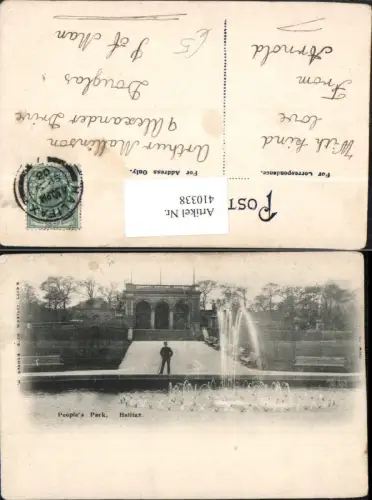 £5
I of Man
Douglas
9 Alexander Drive
Arthur Mallinson
For Address Only.
Arnold
From
love
With kind
For Correspondence.
POST
HALIFAX
Artikel Nr.
410338
People's Park, Halifax.